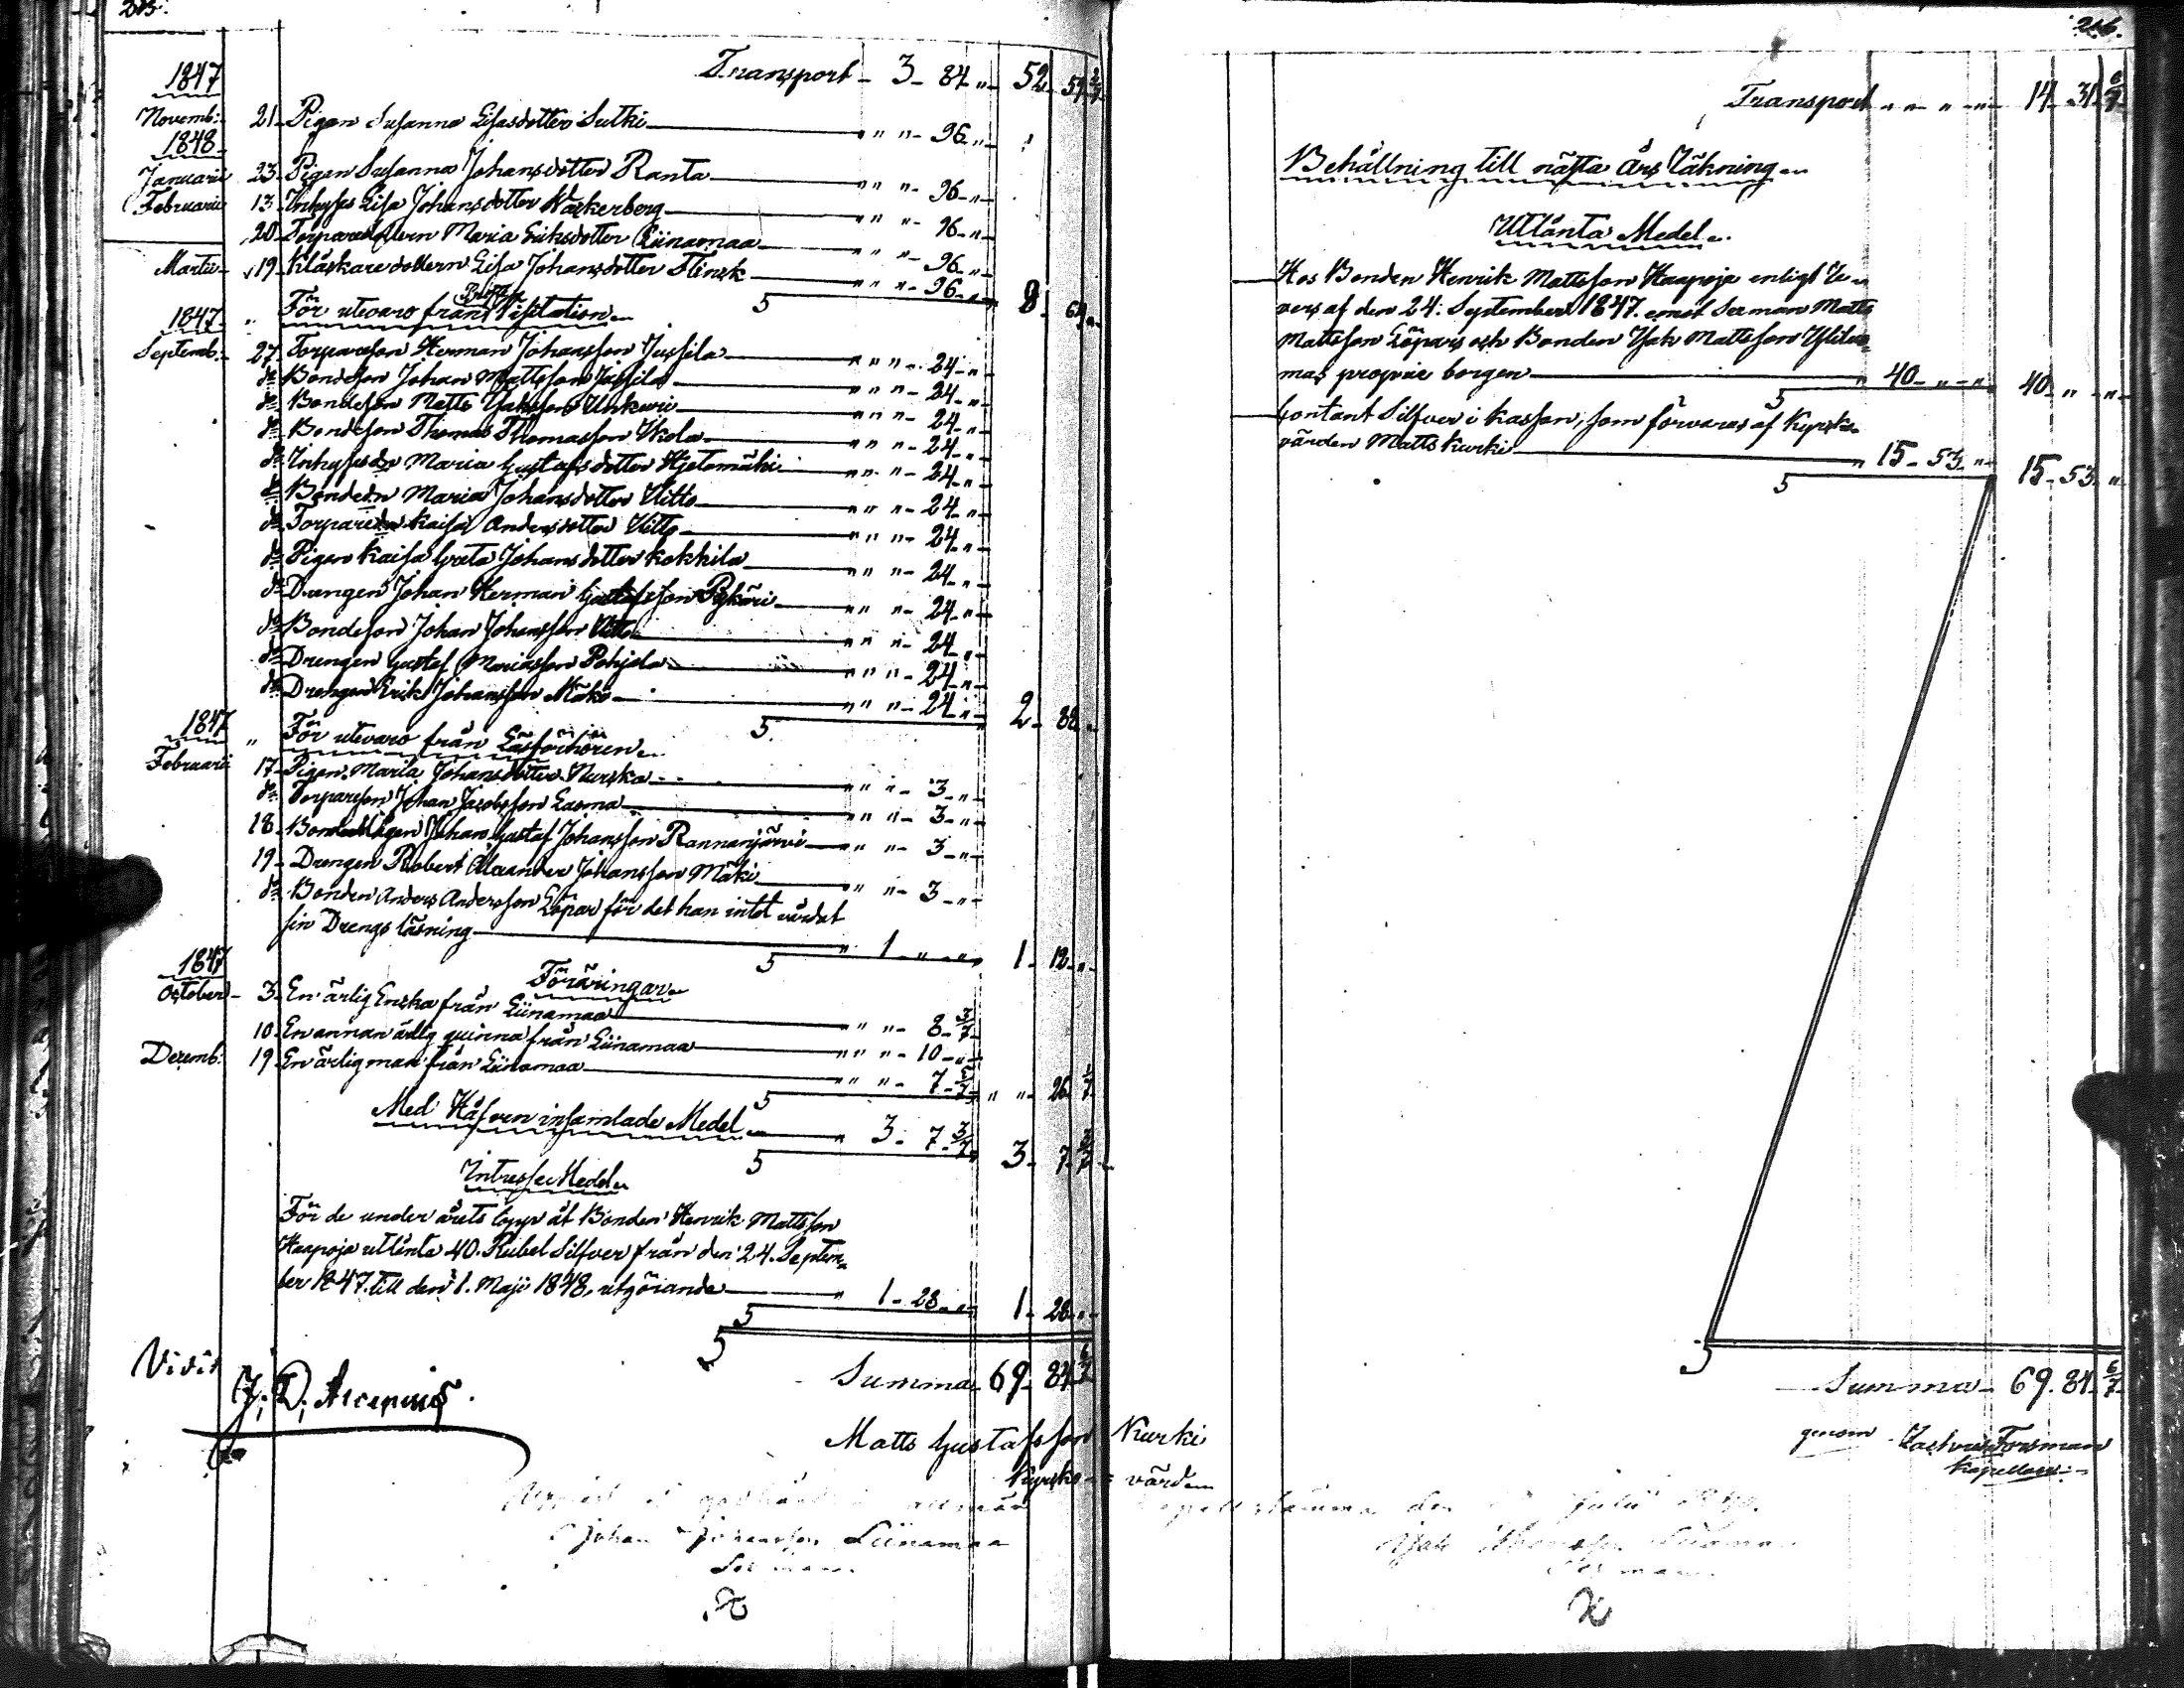 215.
Transport - 3 - 84 „ 52 - 59 2/7
1847
Novemb: 21 Pigan Susanna Esasdotter Sulki " " - 96 - "
1848
Januarii 23 Pigan Susanna Johansdotter Ranta " " - 96 - "
Februarii 13 Inhyses Lisa Johansdotter Wäskerberg " " - 96 - "
20 Maria Eriksdotter Liinamaa " " - 96 - "
Martii 19 dottern Lisa Johansdotter Flinck " " - 96 - " 5 8 - 64 "
1847 " För utevaro från Visitation
Septemb: 27 Torparson Herman Johansson Jussila " " " - 24 - "
do Bondeson Johan Mattsson Jussila " " " - 24 - "
do Bondeson Matts Isaksson Unkuri " " " - 24 - "
do Bondeson Thomas Thomasson Ikola " " " - 24 - "
do Maria Gustafsdotter Hjetamäki " " " - 24 - "
do Maria Johansdotter Uitto " " " - 24 - "
do Kaisa Andersdotter Uitto " " " - 24 - "
do Pigan Kaisa Greta Johansdotter Kokkila " " " - 24 - "
do Drengen Johan Herman Gustafsson " " " - 24 - "
do Bondeson Johan Johansson Uitto " " " - 24 - "
do Drengen Gustaf Mariasson Pohjola " " " - 24 - "
do Drengen Erik Johansson Mäki " " " - 24 - " 5 2 - 88 "
1847 " För utevaro från Läsförhören
Februarii 17 Pigan Maria Johansdotter Nurska " " " - 3 - "
do Torparson Johan Jacobsson Lasma " " " - 3 - "
18 Johan Gustaf Johansson Rannanjärvi " " - 3 - "
19 Drengen Robert Alexander Johansson Mäki " " - 3 - "
do Bonden Anders Andersson Löpar för det han intet vårdat
sin Drengs läsning " 1 - " - " 5 1 - 12 - "
1847 Föräringar
October 3 En ärlig Enska från Liinamaa " " - 8 - 3/7
10 En annan ärlig qvinna från Liinamaa " " " - 10 - "
Decemb: 19 En ärlig man från Liinamaa " " " - 7 - 5/7 5 " " - 26 1/7
Med Håfven insamlade Medel " 3 - 7 - 3/7 5 3 - 7 - 3/7
Intresse Medel
För de under årets lopp åt Bonden Henrik Mattsson
Haapoja utlånta 40. Rubel Silfver från den 24. Septem-
ber 1847. till den 1. Maji 1848, utgörande " 1 - 28 - " 5 1 - 28 - "
5
Summa 69 - 84 6/7
Vidit
Matts Gustafsson Kurki
Kyrko-värden
Johan Johansson Liinamaa
216.
Transport " " " " 14 - 31 6/7
Behållning till nästa års Räkning
Utlånta Medel
Hos Bonden Henrik Mattsson Haapoja enligt Re-
vers af den 24: September 1847. emot Sexman Matts
Mattsson Löpars och Bonden Isak Mattsson
mas proprie borgen " 40 - " - " 5 40 - " - "
Contant Silfver i kassan, som förvaras af Kyrko-
värden Matts Kurki " 15 - 53 - " 5 15 - 53 - "
5
Summa 69. 84. 6/7
genom Zachris Forsman
Kapellan